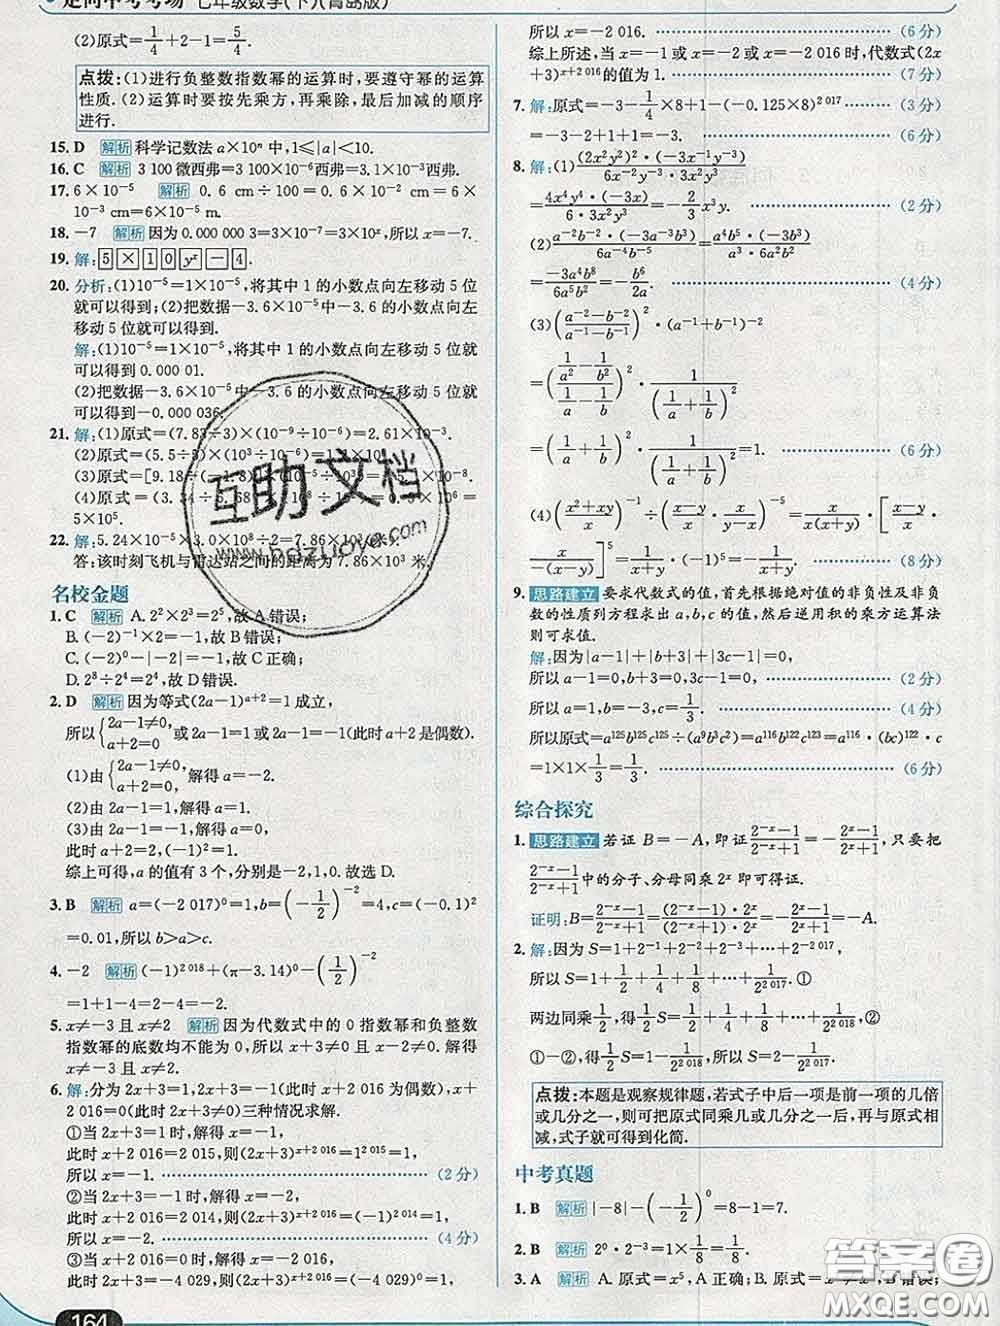 走向中考考场 七年级数学(下)(青岛版)
(2)原式=1/4+2-1=5/4.
点拨:(1)进行负整数指数幂的运算时,要遵守幂的运算
性质.(2)运算时要按先乘方,再乘除,最后加减的顺序
进行.
15. D 解析 科学记数法 a×10ⁿ 中,1≤|a|<10.
16. C 解析 3 100微西弗=3 100×10⁻⁶西弗=3.1×10⁻³西弗.
17. 6×10⁻⁵ 解析 0.6 cm÷100=0.6×10⁻² cm=6×
10⁻³ cm=6×10⁻⁵ m.
18. -7 解析 因为0.000 000 3=3×10⁻⁷=3×10ˣ,所以x=-7.
19. 解: 5 × 1 0 yˣ - 4 .
20. 分析:(1)10⁻⁵=1×10⁻⁵,将其中1的小数点向左移动5位
就可以得到;(2)把数据-3.6×10⁻⁵中-3.6的小数点向左
移动5位就可以得到.
解:(1)10⁻⁵=1×10⁻⁵,将其中1的小数点向左移动5位就
可以得到0.000 01.
(2)把数据-3.6×10⁻⁵中-3.6的小数点向左移动5位就
可以得到-0.000 036.
21. 解:(1)原式=(7.83÷3)×(10⁻⁹÷10⁻⁶)=2.61×10⁻³.
(2)原式=(5.5÷5)×(10³÷10⁻²)=
(3)原式=[9.18÷(-1.8)]
(4)原式=
5×10⁵.
22. 解:5.24×10⁻⁵×3.0×10⁸÷2=7.86×10³
答:该时刻飞机与雷达站之间的距离为7.86×10³ 米.
名校金题
1. C 解析 A. 2²×2³=2⁵,故A错误;
B. (-2)⁻¹×2=-1,故B错误;
C. (-2)⁰-|-2|=-1,故C正确;
D. 2⁸÷2⁴=2⁴,故D错误.
2. D 解析 因为等式(2a-1)ᵃ⁺²=1成立,
所以{2a-1≠0, a+2=0 或2a-1=1或2a-1=-1(此时a+2是偶数).
(1)由{2a-1≠0, a+2=0, 解得a=-2.
(2)由2a-1=1,解得a=1.
(3)由2a-1=-1,解得a=0,
此时a+2=2,(-1)²=1.
综上可得,a的值有3个,分别是-2,1,0.故选D.
3. B 解析 a=(-2 017)⁰=1,b=(-1/2)⁻²=4,c=(-0.1)²
=0.01,所以b>a>c.
4. -2 解析 (-1)²⁰¹⁸+(π-3.14)⁰-(1/2)⁻²
=1+1-4=2-4=-2.
5. x≠-3且x≠2 解析 因为代数式中的0指数幂和负整数
指数幂的底数均不能为0,所以x+3≠0且x-2≠0.解得x
≠-3且x≠2.
6. 解:分为2x+3=1,2x+3=-1(此时x+2 016为偶数),x+
2 016=0(此时2x+3≠0)三种情况求解.
①当2x+3=1时,解得x=-1,
此时x+2 016=2 015,则(2x+3)ˣ⁺²⁰¹⁶=1²⁰¹⁵=1,
所以x=-1. (2分)
②当2x+3=-1时,解得x=-2,
此时x+2 016=2 014,则(2x+3)ˣ⁺²⁰¹⁶=(-1)²⁰¹⁴=1,
所以x=-2. (4分)
③当x+2 016=0时,解得x=-2 016,
此时2x+3=-4 029,则(2x+3)ˣ⁺²⁰¹⁶=(-4 029)⁰=1,
164
所以x=-2 016. (6分)
综上所述,当x=-1或x=-2或x=-2 016时,代数式(2x
+3)ˣ⁺²⁰¹⁶的值为1. (7分)
7. 解:原式=-3-1/4×8+1-(-0.125×8)²⁰¹⁷ (3分)
=-3-2+1+1=-3. (6分)
8. 解:(1)(2x²y²)²·(-3x⁻¹y⁻³)/(6x⁻²·x²y³)
=4x⁴y⁴·(-3x)/(6·x²y³y³)=-2/3x³y. (2分)
(2)a⁻²b⁻²·(-3a⁻³b³)/(6a⁻⁴b⁻⁵)=a⁴b⁵·(-3b³)/(a³·6a²b²)
=-3a⁴b⁸/(6a⁵b²)=-b⁶/(2a). (4分)
(3)((a⁻²-b⁻²)/(a⁻¹-b⁻¹))²·(a⁻¹+b⁻¹)⁻²
=((1/a²-1/b²)/(1/a-1/b))²·1/(1/a+1/b)²
=(1/a+1/b)²·1/(1/a+1/b)²=1. (6分)
(4)((x²+xy)/x)⁻¹÷((x-y)/x·x/(y-x))⁻⁵=x/(x(x+y))·[(x-y)/x·
x/(-(x-y))]⁵=1/(x+y)·(-1)⁵=-1/(x+y). (8分)
9. 思路建立 要求代数式的值,首先根据绝对值的非负性及非负
数的性质列方程求出a,b,c的值,然后逆用积的乘方运算法
则可求值.
解:因为|a-1|+|b+3|+|3c-1|=0,
所以a-1=0,b+3=0,3c-1=0, (2分)
所以a=1,b=-3,c=1/3. (4分)
所以原式=a¹²⁵b¹²⁵c¹²⁵÷(a⁹b³c²)=a¹¹⁶b¹²²c¹²³=a¹¹⁶·(bc)¹²²·c
=1×1×1/3=1/3. (6分)
综合探究
1. 思路建立 若证B=-A,即证(2⁻ˣ-1)/(2⁻ˣ+1)=-(2ˣ-1)/(2ˣ+1),只要把
(2⁻ˣ-1)/(2⁻ˣ+1)中的分子、分母同乘2ˣ即可得证.
证明:B=(2⁻ˣ-1)/(2⁻ˣ+1)=(2⁻ˣ-1)·2ˣ/((2⁻ˣ+1)·2ˣ)=-(2ˣ-1)/(2ˣ+1)=-A.
2. 解:因为S=1+2⁻¹+2⁻²+2⁻³+⋯+2⁻²⁰¹⁷,
所以S=1+1/2+1/4+1/8+⋯+1/2²⁰¹⁷,①
两边同乘1/2,得1/2S=1/2+1/4+1/8+⋯+1/2²⁰¹⁸,②
①-②,得1/2S=1-1/2²⁰¹⁸,所以S=2-1/2²⁰¹⁷.
点拨:本题是观察规律题,若式子中后一项是前一项的几倍
或几分之一,则可把原式同乘几或几分之一后,再与原式相
减,式子就可得到化简.
中考真题
1. B 解析 |-8|-(-1/2)⁰=8-1=7.
2. B 解析 2⁰·2⁻³=1×1/8=1/8.
3. A 解析 A.原式=x⁵,A正确;
B错误;
互助文档
www.hdzuoye.com
答案圈
MXQE.COM